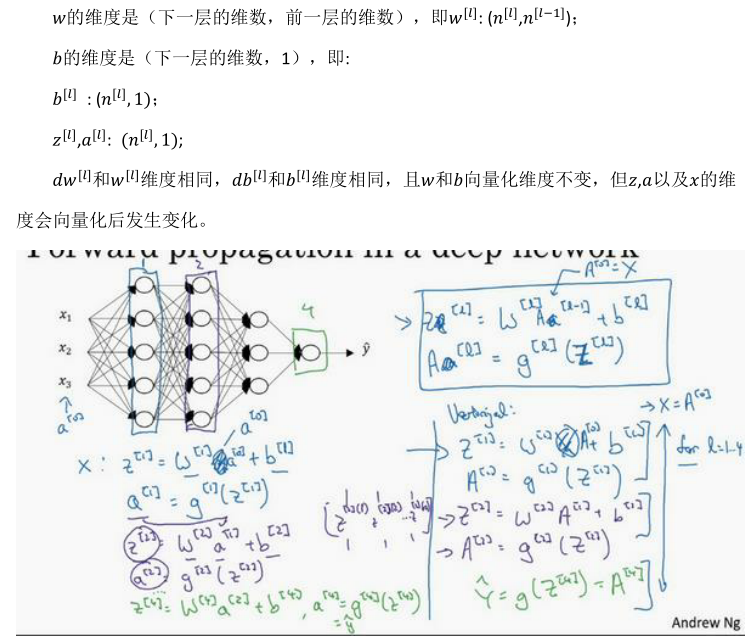 w的维度是（下一层的维数，前一层的维数），即w^[l]: (n^[l],n^[l−1])；
b的维度是（下一层的维数，1），即:
b^[l] : (n^[l], 1)；
z^[l],a^[l]: (n^[l], 1);
dw^[l]和w^[l]维度相同，db^[l]和b^[l]维度相同，且w和b向量化维度不变，但z,a以及x的维
度会向量化后发生变化。
Forward propagation in a deep network
1 2 4
x₁
x₂
x₃
ŷ
a^[0]
a^[0]
x: z^[1] = w^[1] a^[0] + b^[1]
a^[1] = g^[1](z^[1])
z^[2] = w^[2] a^[1] + b^[2]
a^[2] = g^[2](z^[2])
z^[4] = w^[4] a^[3] + b^[4], a^[4] = g^[4](z^[4])
= ŷ
A^[0] = X
→ Z^[l] = W^[l] A^[l-1] + b^[l]
A^[l] = g^[l](Z^[l])
→ X = A^[0]
Z^[1] = W^[1] A^[0] + b^[1]
A^[1] = g^[1](Z^[1])
for l=1..4
→ Z^[2] = W^[2] A^[1] + b^[2]
→ A^[2] = g^[2](Z^[2])
Ŷ = g(Z^[4]) = A^[4]
Andrew Ng